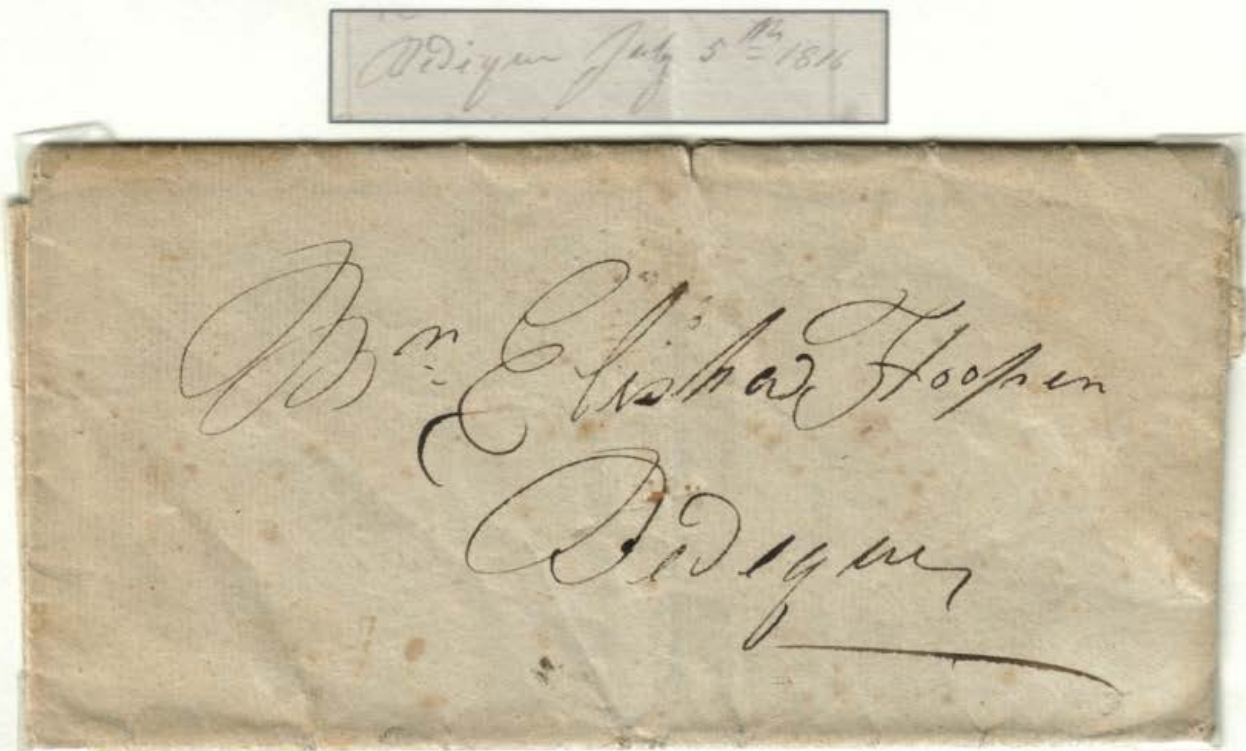 Bedeque July 5th 1816
Mr. Elisha Hooper
Bedeque